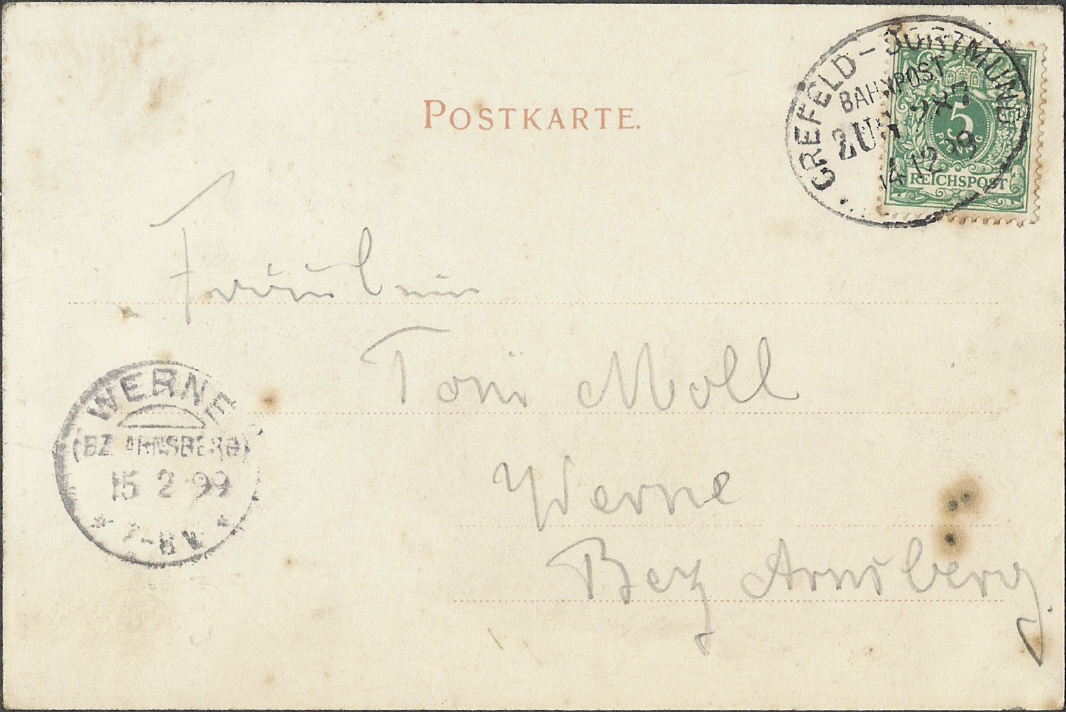 POSTKARTE.
CREFELD-DORTMUND
BAHNPOST
ZUG
5
REICHSPOST
Fräulein
Toni Moll
Werne
Bez Arnsberg
WERNE
(BZ. ARNSBERG)
15 2 99
* 7-8V *